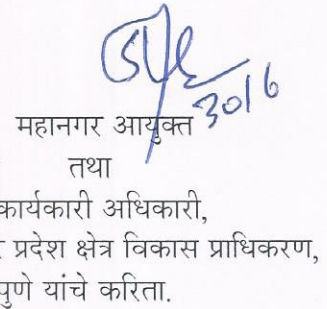 30/6
महानगर आयुक्त
तथा
कार्यकारी अधिकारी,
प्रदेश क्षेत्र विकास प्राधिकरण,
पुणे यांचे करिता.